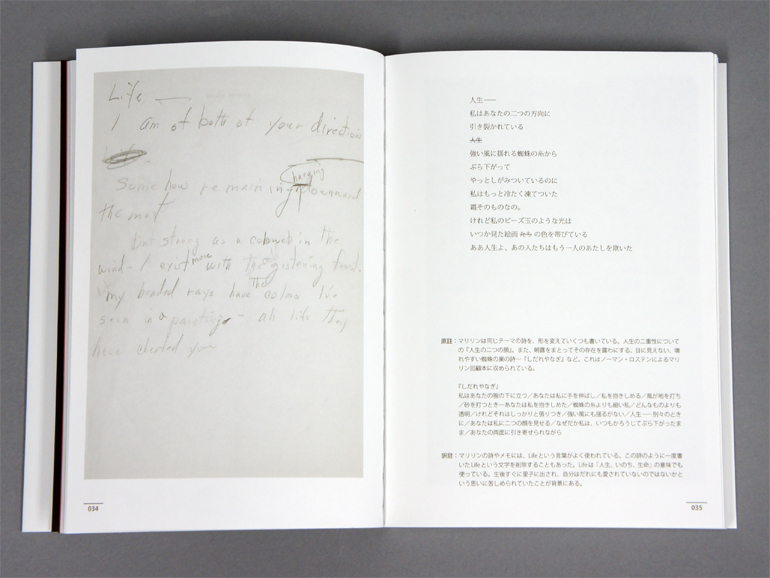 Life —
I am of both of your directions
Somehow remaining
hanging downward
the most
but strong as a cobweb in the
wind - I exist more with the glistening frost.
my beaded rays have the colors I've
seen in a paintings - ah life they
have cheated you
034
人生——
私はあなたの二つの方向に
引き裂かれている
人生
強い風に揺れる蜘蛛の糸から
ぶら下がって
やっとしがみついているのに
私はもっと冷たく凍てついた
霜そのものなの。
けれど私のビーズ玉のような光は
いつか見た絵画 たち の色を帯びている
ああ人生よ、あの人たちはもう一人のあたしを欺いた
原註：マリリンは同じテーマの詩を、形を変えていくつも書いている。人生の二重性について
の『人生の二つの顔』。また、朝露をまとってその存在を露わにする、目に見えない、壊
れやすい蜘蛛の巣の詩─『しだれやなぎ』など。これはノーマン・ロステンによるマリ
リン回顧本に収められている。
『しだれやなぎ』
私はあなたの腕の下に立つ／あなたは私に手を伸ばし／私を抱きしめる／風が地を打ち
／砂を打つとき─あなたは私を抱きしめた／蜘蛛の糸よりも細い私／どんなものよりも
透明／けれどそれはしっかりと張りつき／強い風にも揺るがない／人生──別々のとき
に／あなたは私に二つの顔を見せる／なぜだか私は、いつもかろうじてぶら下がったま
ま／あなたの両面に引き寄せられながら
訳註：マリリンの詩やメモには、Lifeという言葉がよく使われている。この詩のように一度書
いたLifeという文字を削除することもあった。Lifeは「人生、いのち、生命」の意味でも
使っている。生後すぐに里子に出され、自分はだれにも愛されていないのではないかと
という思いに苦しめられていたことが背景にある。
035